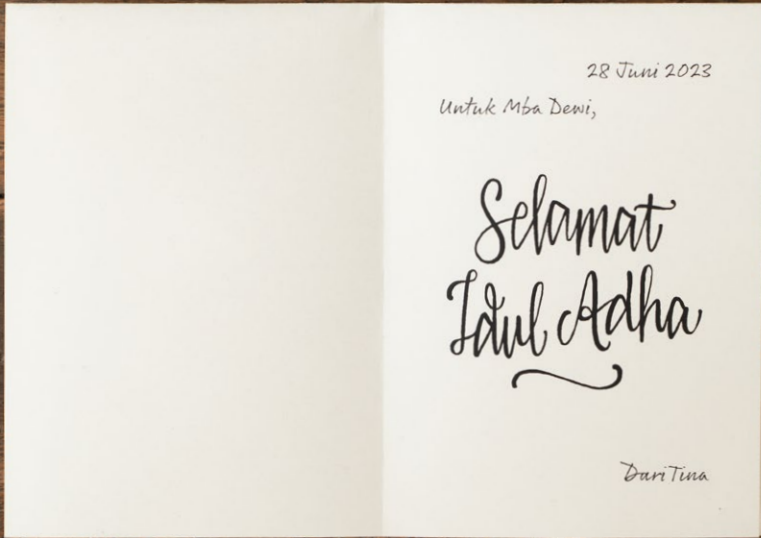 28 Juni 2023
Untuk Mba Dewi,
Selamat
Idul Adha
Dari Tina